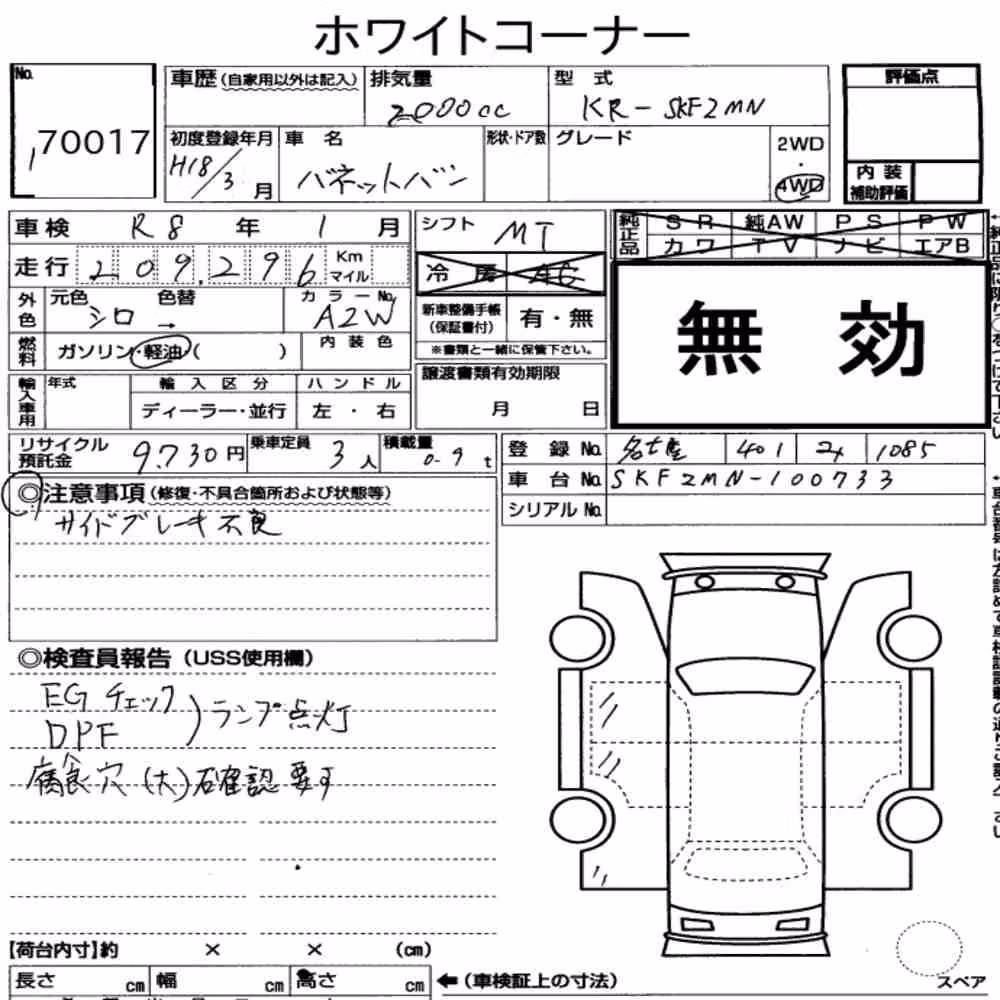 ホワイトコーナー
No. 70017
車歴(自家用以外は記入)
排気量 2000cc
型式 KR-SKF2MN
評価点
内装補助評価
初度登録年月 H18/3月
車名 バネットバン
形状・ドア数
グレード
2WD・4WD
車検 R8年 1月
シフト MT
純正品 SR 純AW PS PW
カワ TV ナビ エアB
走行 209,296 Km マイル
冷房 AC
無効
外色 元色 シロ → 色替
カラーNo. A2W
新車整備手帳(保証書付) 有・無
※書類と一緒に保管下さい。
燃料 ガソリン・軽油・( )
内装色
譲渡書類有効期限
月 日
輸入車用 年式
輸入区分 ディーラー・並行
ハンドル 左・右
リサイクル預託金 9,730円
乗車定員 3人
積載量 0.9t
登録No. 名古屋 401 1085
車台No. SKF2MN-100733
シリアルNo.
◎注意事項(修復・不具合箇所および状態等)
サイドブレーキ不良
◎検査員報告(USS使用欄)
EGチェック
DPF
)ランプ点灯
腐食穴(大)確認要す
【荷台内寸】約 × × (cm)
長さ cm 幅 cm 高さ cm
←(車検証上の寸法)
スペア